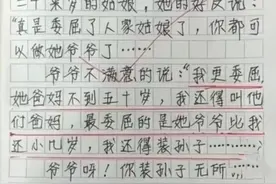 二十来岁的姑娘，她的好友说：
“真是委屈了人家姑娘了，你都可
以做她爷爷了……
爷爷不满意的说：“我更委屈
她爸妈不到五十岁，我还得叫他
们爸妈，最委屈的是她爷爷比我
还小几岁，我还得装孙子…………
爷爷呀！你装孙子无所……